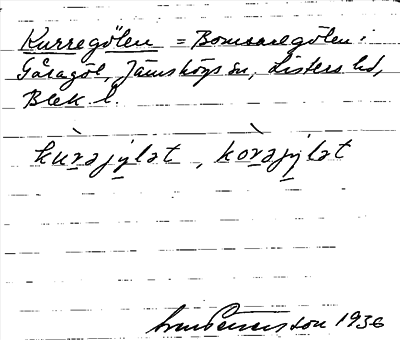 Kurregölen = Bomsaregölen i
Gåragöl, Jämshögs sn, Listers hd,
Blek. l.
kùrajylat, kòrajylat
1936